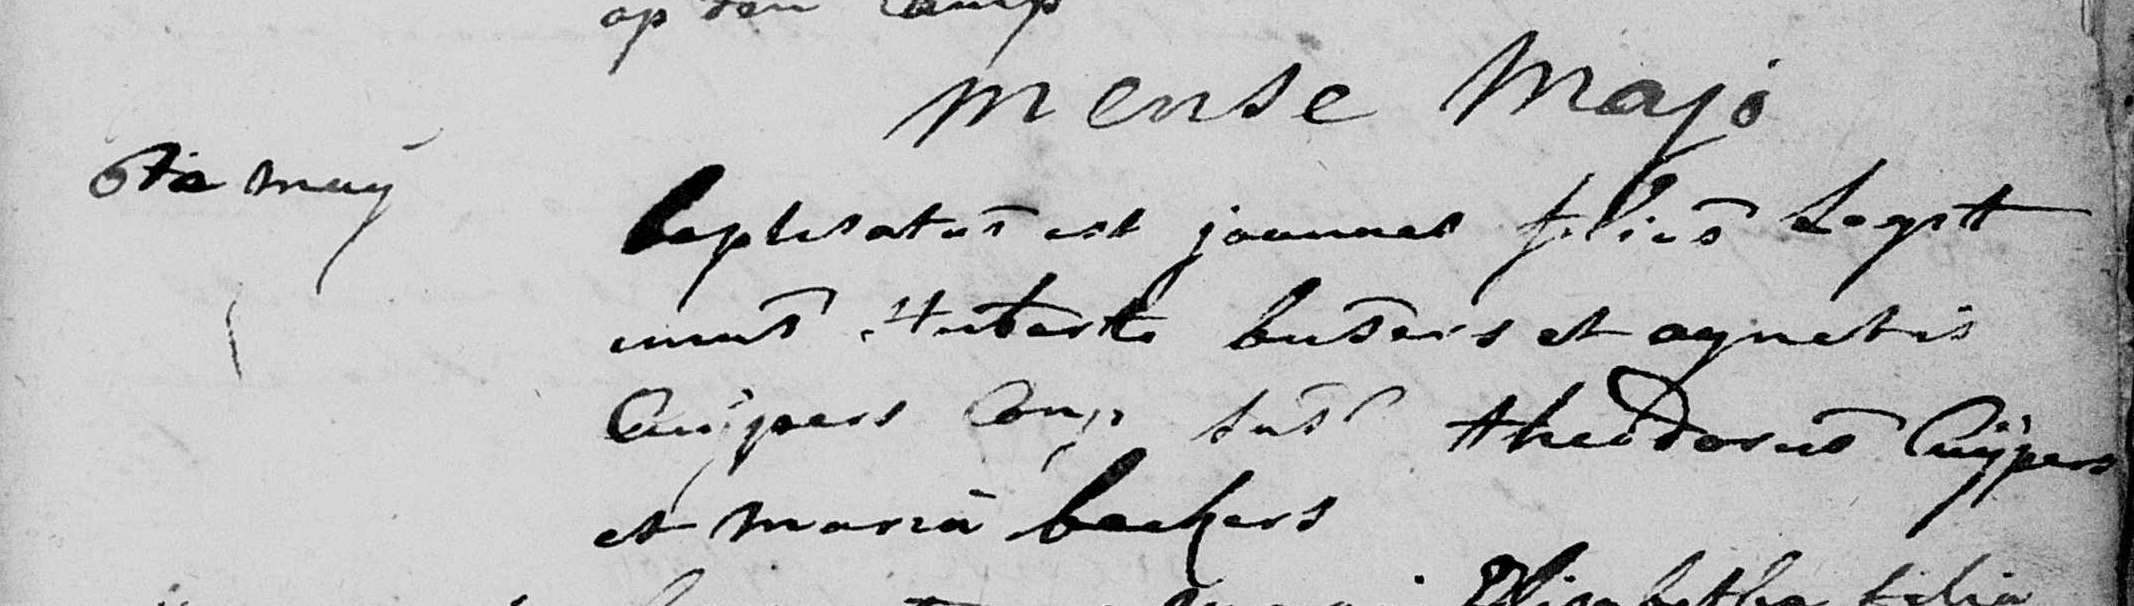 op den Camp
Mense Majo
6ta may
baptisatus est joannes filius Legitt
imus Huberti buters et agnetis
Cuÿpers Conj: sus: theodorus Cuÿpers
et maria beckers
Elisabetha filia